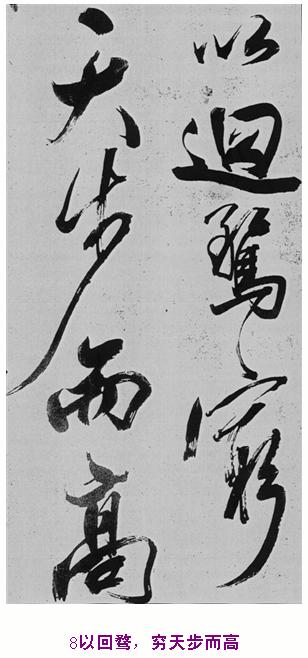 以迴鶩窮
天步而高
8以回骛，穷天步而高